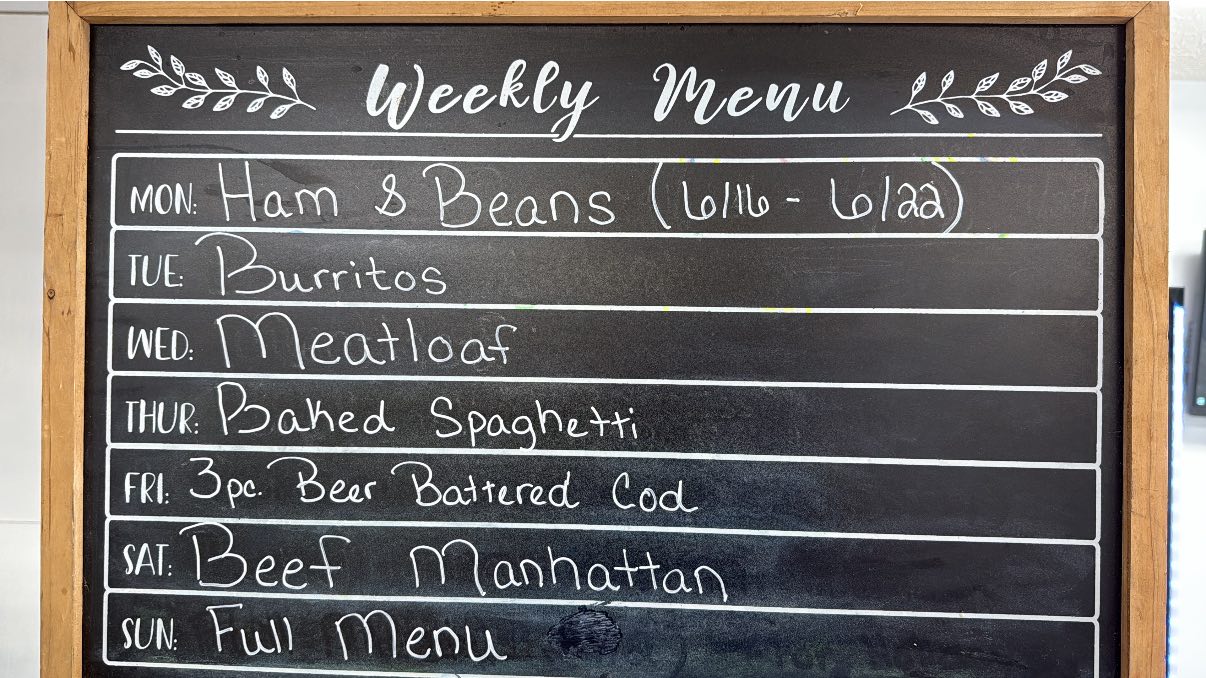 Weekly Menu
MON: Ham & Beans (6/16 - 6/22)
TUE: Burritos
WED: Meatloaf
THUR: Baked Spaghetti
FRI: 3pc. Beer Battered Cod
SAT: Beef Manhattan
SUN: Full Menu